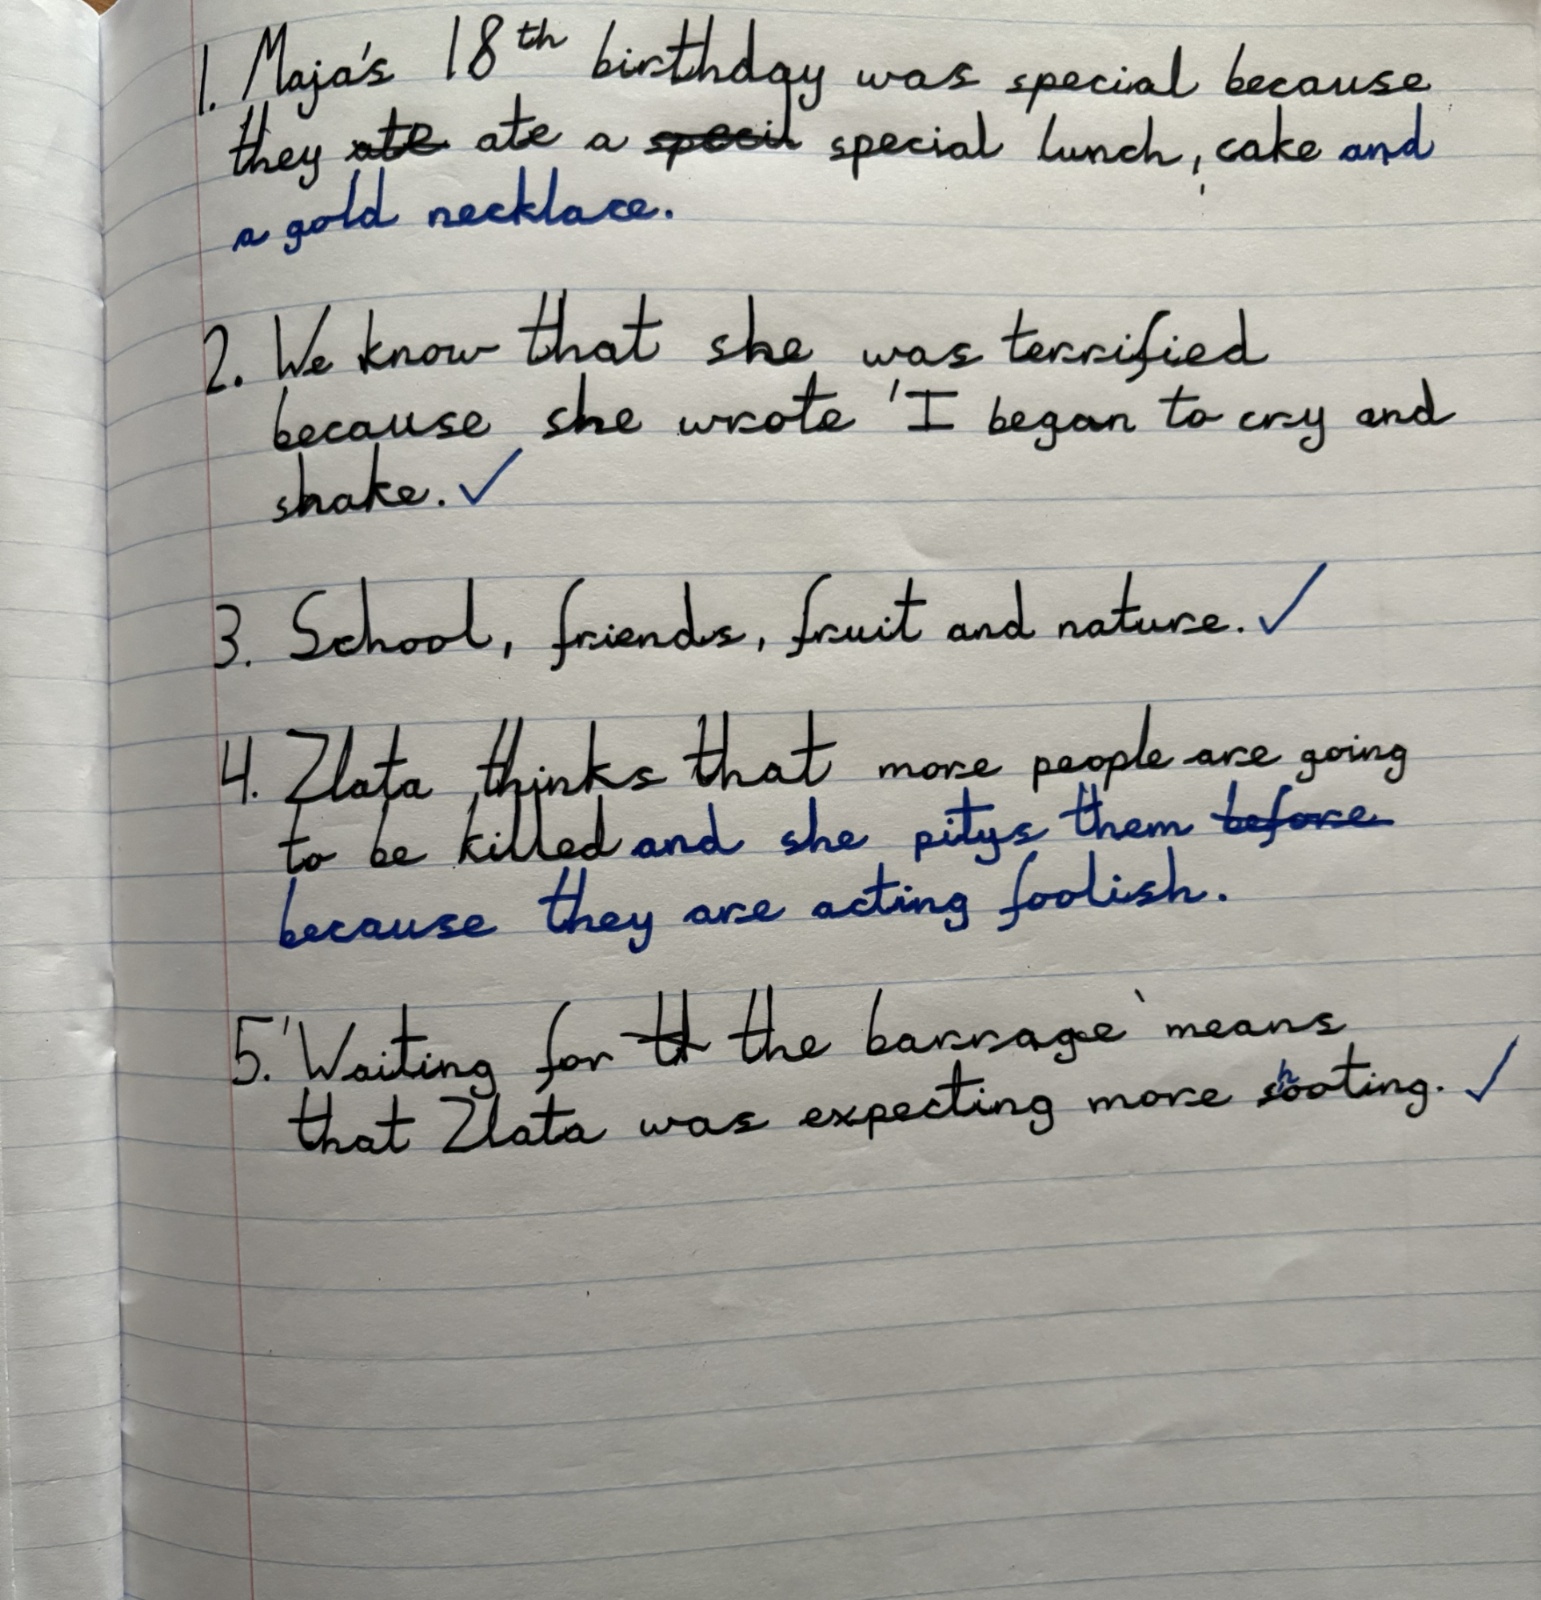 1. Maja's 18th birthday was special because
they ate ate a specil special lunch, cake and
a gold necklace.
2. We know that she was terrified
because she wrote 'I began to cry and
shake. ✓
3. School, friends, fruit and nature. ✓
4. Zlata thinks that more people are going
to be killed and she pitys them before
because they are acting foolish.
5. 'Waiting for tt the barrage' means
that Zlata was expecting more shooting. ✓